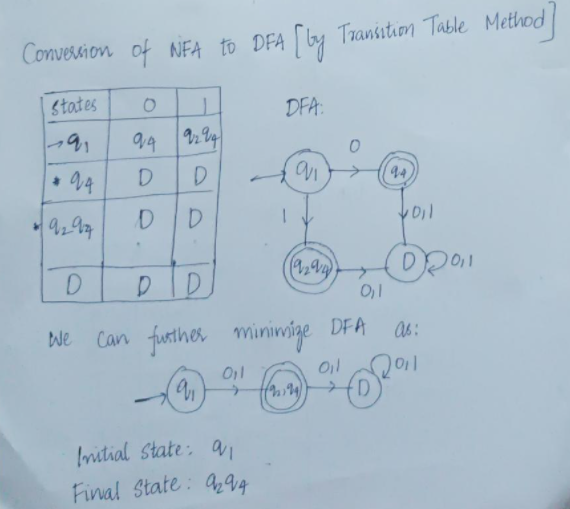 Conversion of NFA to DFA [by Transition Table Method]
States 0 1
→q1 q4 q2q4
* q4 D D
* q2q4 D D
D D D
DFA:
q1 0 q4
1 0,1
q2q4 0,1 D 0,1
We can further minimize DFA as:
q1 0,1 q2,q4 0,1 D 0,1
Initial State: q1
Final State: q2q4